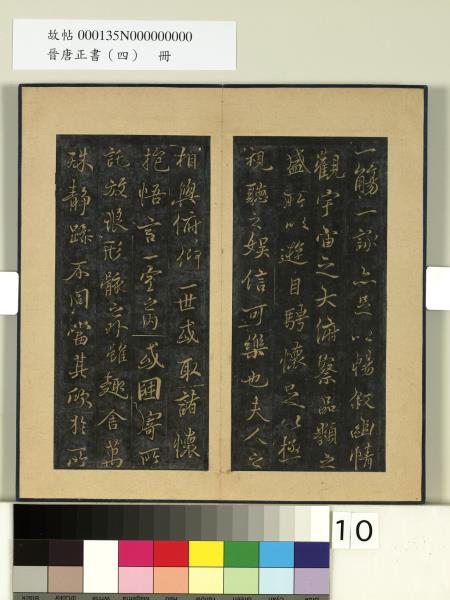 故帖 000135N000000000
晉唐正書（四） 冊
一觴一詠亦足以暢敘幽情
觀宇宙之大俯察品類之
盛所以遊目騁懷足以極
視聽之娛信可樂也夫人之
相與俯仰一世或取諸懷
抱悟言一室之內或因寄所
託放浪形骸之外雖趣舍萬
殊靜躁不同當其欣於所
10
Black
3/Color
White
Magenta
Red
Yellow
Green
Cyan
Blue